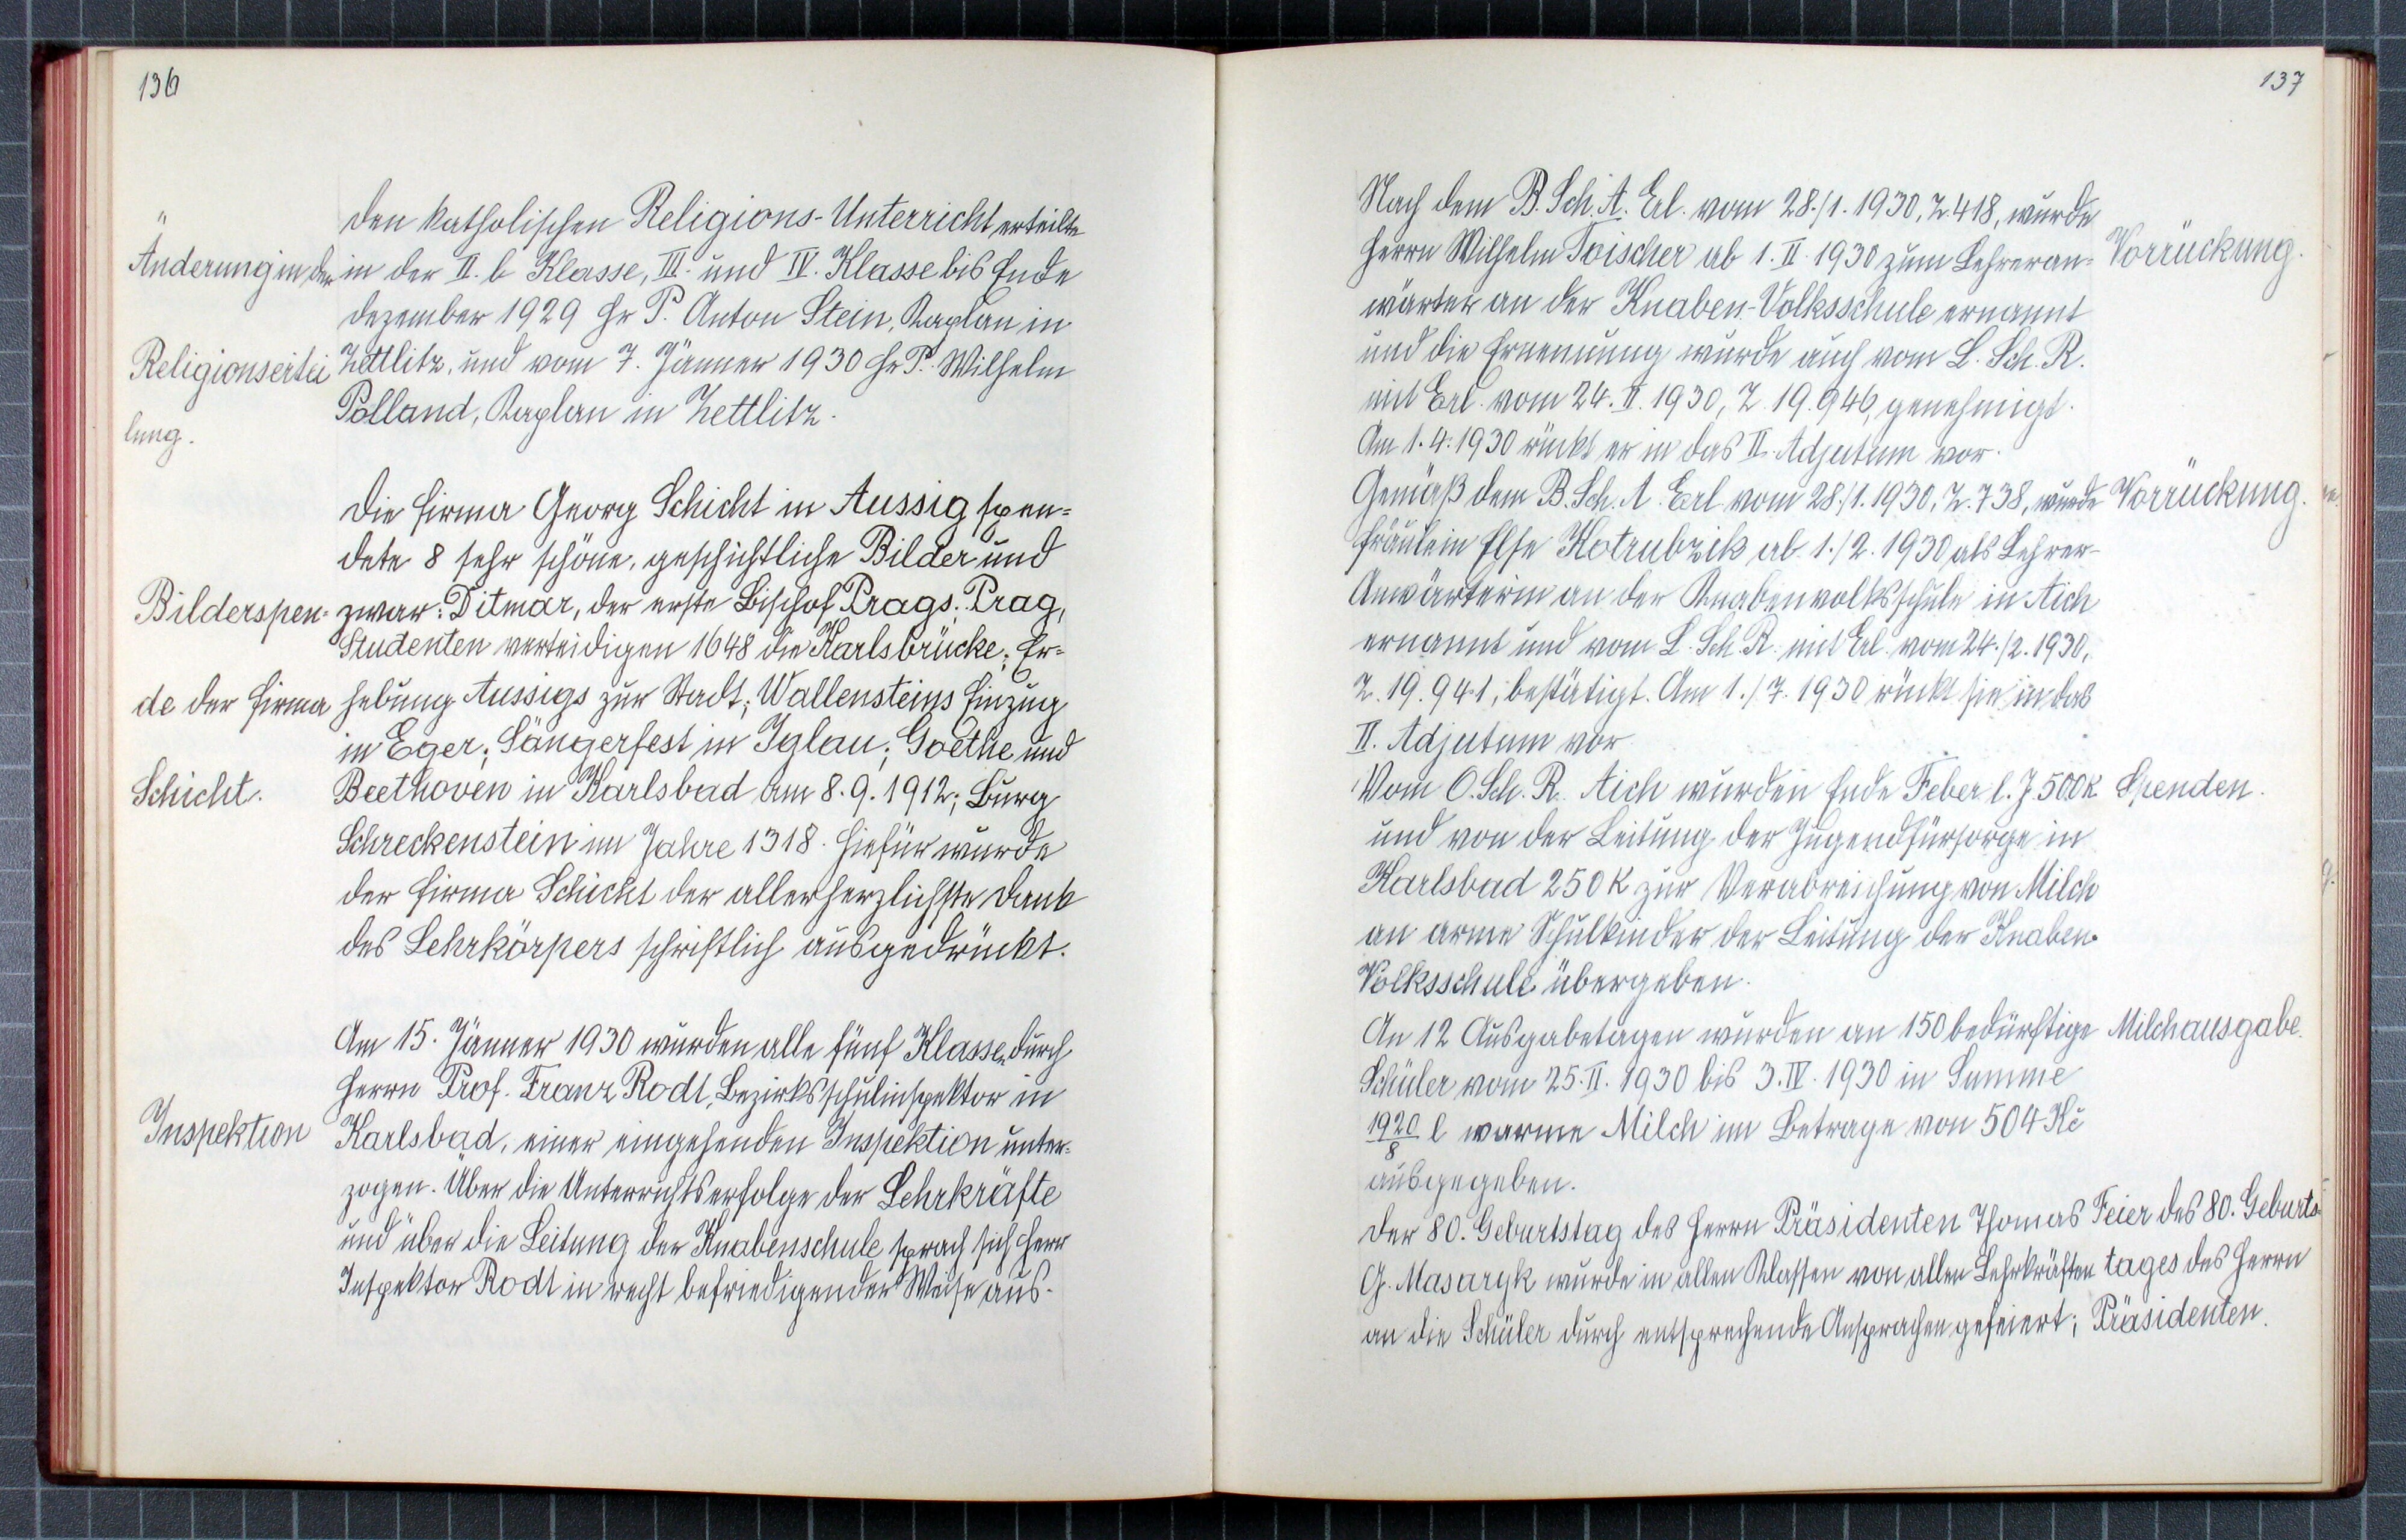 136
Den katholischen Religions-Unterricht erteilte
Änderung in der
in der II. b Klasse, III. und IV. Klasse bis Ende
Dezember 1929 Hr P. Anton Stein, Kaplan in
Religionsertei
Zettlitz, und vom 7. Jänner 1930 Hr P. Wilhelm
Polland, Kaplan in Zettlitz.
lung.
Die Firma Georg Schicht in Aussig spen=
dete 8 sehr schöne, geschichtliche Bilder und
Bilderspen=
zwar: Ditmar, der erste Bischof Prags; Prag,
Studenten verteidigen 1648 die Karlsbrücke; Er=
de der Firma
hebung Aussigs zur Stadt; Wallensteins Einzug
in Eger; Sängerfest in Iglau; Goethe und
Schicht.
Beethoven in Karlsbad am 8. 9. 1912; Burg
Schreckenstein im Jahre 1318. Hiefür wurde
der Firma Schicht der allerherzlichste Dank
des Lehrkörpers schriftlich ausgedrückt.
Am 15. Jänner 1930 wurden alle fünf Klassen durch
Herrn Prof. Franz Rodt, Bezirksschulinspektor in
Inspektion
Karlsbad, einer eingehenden Inspektion unter=
zogen. Über die Unterrichtserfolge der Lehrkräfte
und über die Leitung der Knabenschule sprach sich Herr
Inspektor Rodt in recht befriedigender Weise aus.
137
Nach dem B. Sch. A. Erl. vom 28./1. 1930, Z. 418, wurde
Herrn Wilhelm Toischer ab 1. II. 1930 zum Lehreran=
Vorrückung.
wärter an der Knaben-Volksschule ernannt
und die Ernennung wurde auch vom L. Sch. R.
mit Erl. vom 24. II. 1930, Z. 19.946, genehmigt.
Am 1. 4. 1930 rückt er in das II. Adjutum vor.
Gemäß dem B. Sch. A. Erl. vom 28./1. 1930, Z. 738, wurde
Vorrückung.
Fräulein Else Kotrubzik ab 1./2. 1930 als Lehrer-
Anwärterin an der Knabenvolksschule in Aich
ernannt und vom L. Sch. R. mit Erl. vom 24./2. 1930,
Z. 19.941, bestätigt. Am 1./7. 1930 rückt sie in das
II. Adjutum vor
Vom O. Sch. R. Aich wurden Ende Feber l. J. 500 K
Spenden.
und von der Leitung der Jugendfürsorge in
Karlsbad 250 K zur Verabreichung von Milch
an arme Schulkinder der Leitung der Knaben-
Volksschule übergeben.
An 12 Ausgabetagen wurden an 150 bedürftige
Milchausgabe.
Schüler vom 25. II. 1930 bis 3. IV. 1930 in Summe
1920/8 l warme Milch im Betrage von 504 Kč
ausgegeben.
Der 80. Geburtstag des Herrn Präsidenten Thomas
Feier des 80. Geburts-
G. Masaryk wurde in allen Klassen von allen Lehrkräften
tages des Herrn
an die Schüler durch entsprechende Ansprachen gefeiert;
Präsidenten.